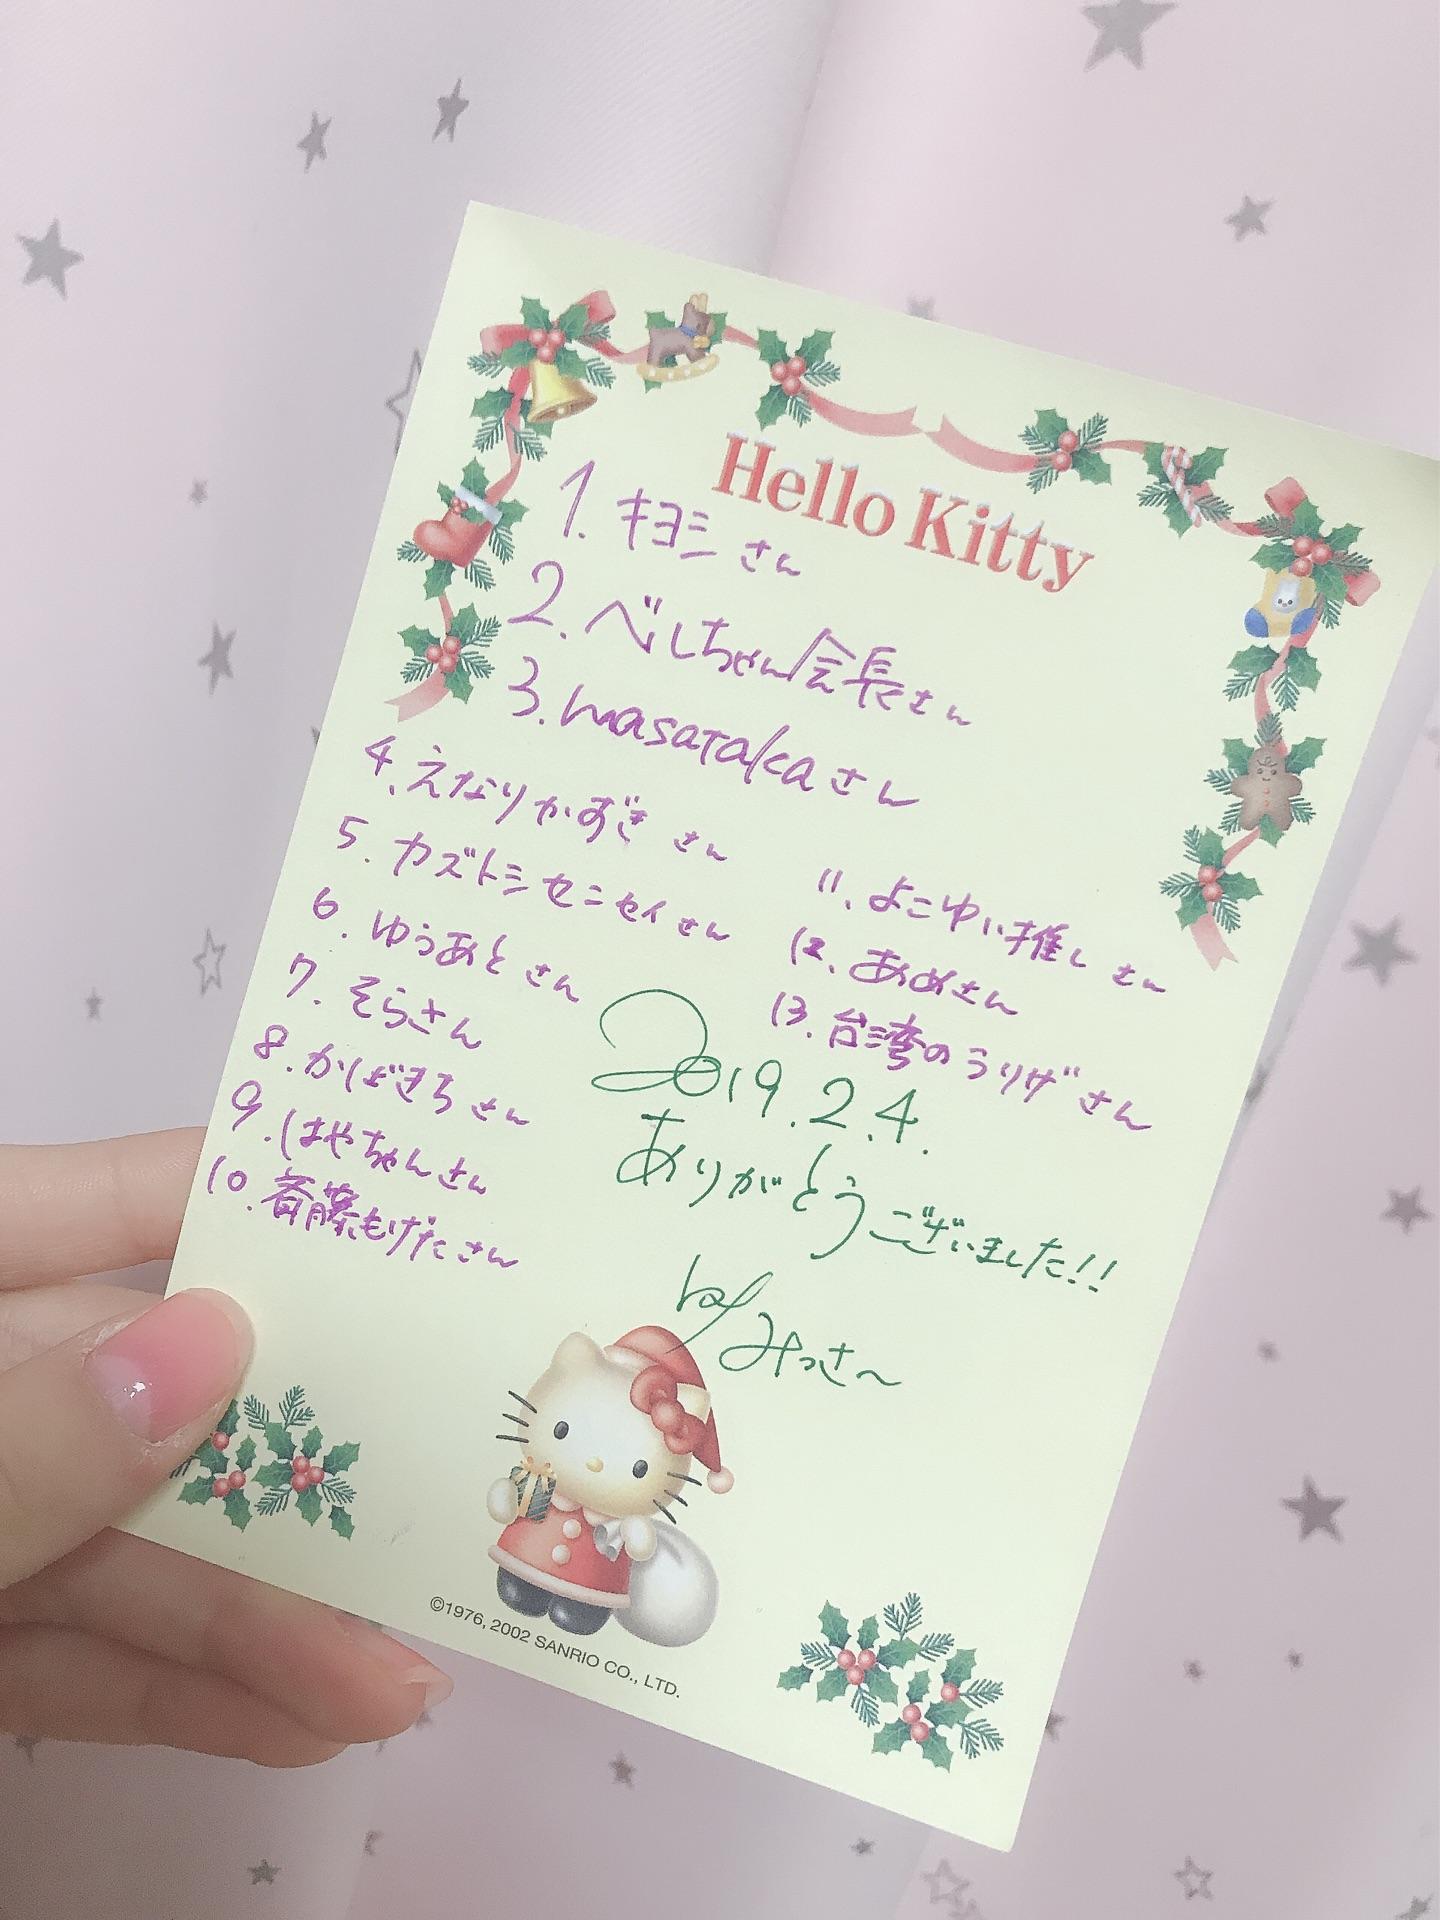 Hello Kitty
1. キヨシ さん
2. べしちゃん会長さん
3. masatakaさん
4. えなりかずき さん
5. カズトシセニセイさん
6. ゆうあと さん
7. そらさん
8. かりばきち さん
9. はやちゃんさん
10. 斉藤もげたさん
11. よこゆい推し さん
12. あめさん
13. 台湾のうりげさん
2019.2.4.
ありがとうございました!!
by みっさ〜
©1976, 2002 SANRIO CO., LTD.